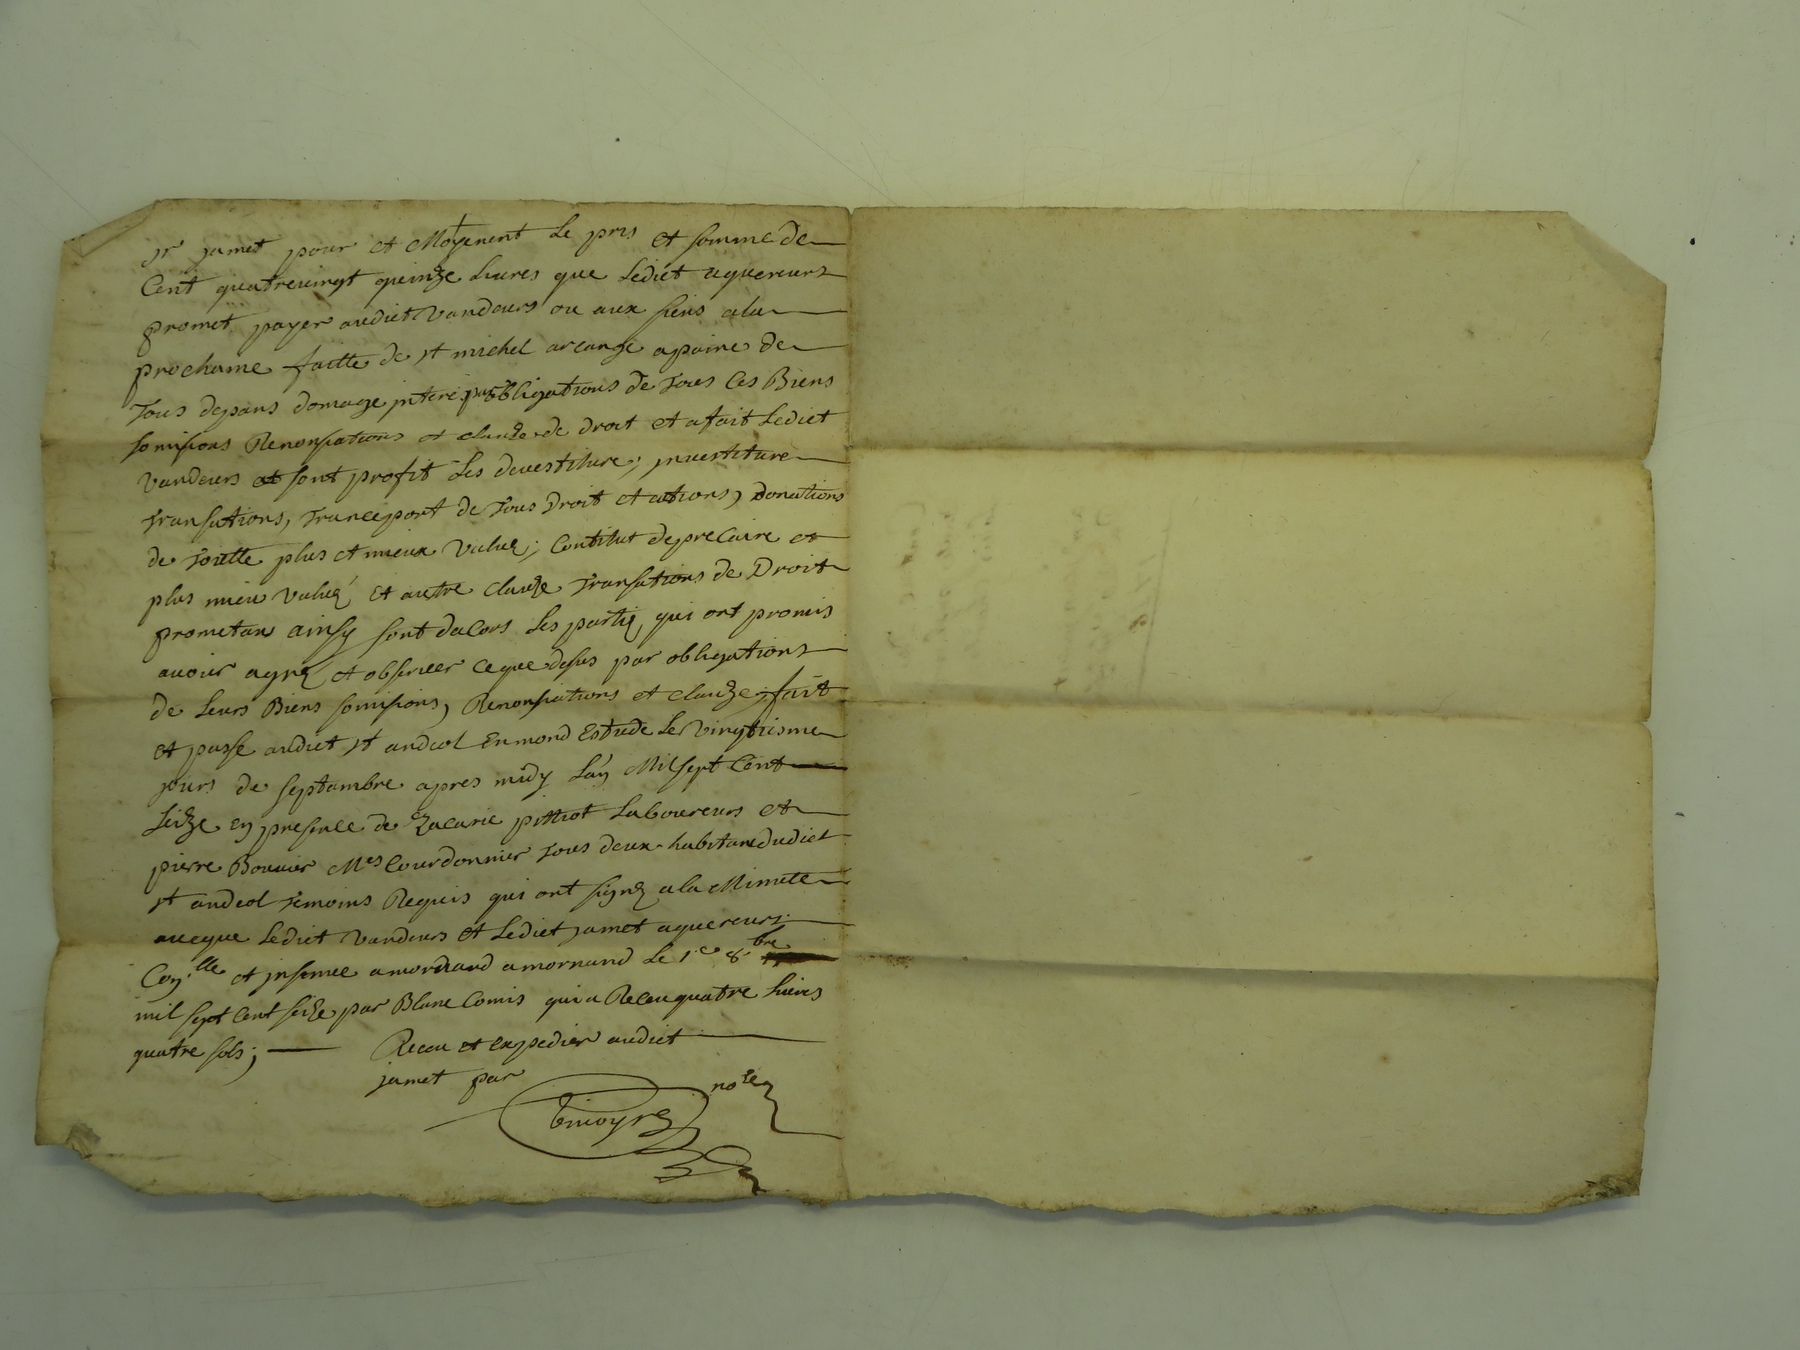 sr jamet pour et Moyenent Le pris et somme de
Cent quatrevingt quinze Livres que Ledict aquereurs
promet payer audict Vandeurs ou aux siens a la
prochaine faitte de st michel arcange apaine de
Tous depans domage interi par obligations de Tous Ces Biens
somisions Renonsiations et clauze de droit et a fait Ledict
Vandeurs et sont profit Les devestiture, jnvestiture
Transations, Transport de Tous Droit et ations, Donations
de Toutte plus et mieux Valué; Contitut de preCaire et
plus mieu valué et autre clauze Translations de Droit
prometan ainsy sont daCors Les partie, qui ont promis
avoir agré et observer ce que desus par obligations
de Leurs Biens somisions, Renonsiations et clauze, fait
et passe audict st andeol En mond Estude Le vingtiesme
jours de septambre apres midy L'an Mil sept Cent
seize en presence de Zacarie pittiot Laboureurs et
pierre Bouvier Mes Courdonnier Tous deux habitans dudict
st andeol Temoins Requis qui ont signé a la Minutte
avecque Ledict Vandeurs et Ledict jamet aquereurs
Con.lle et jnsinué a mornand Le 1e 8bre
mil sept cent seize par Blanc Comis qui a Receu quatre Livres
quatre sols; Receu et expedier audict
jamet par
nore